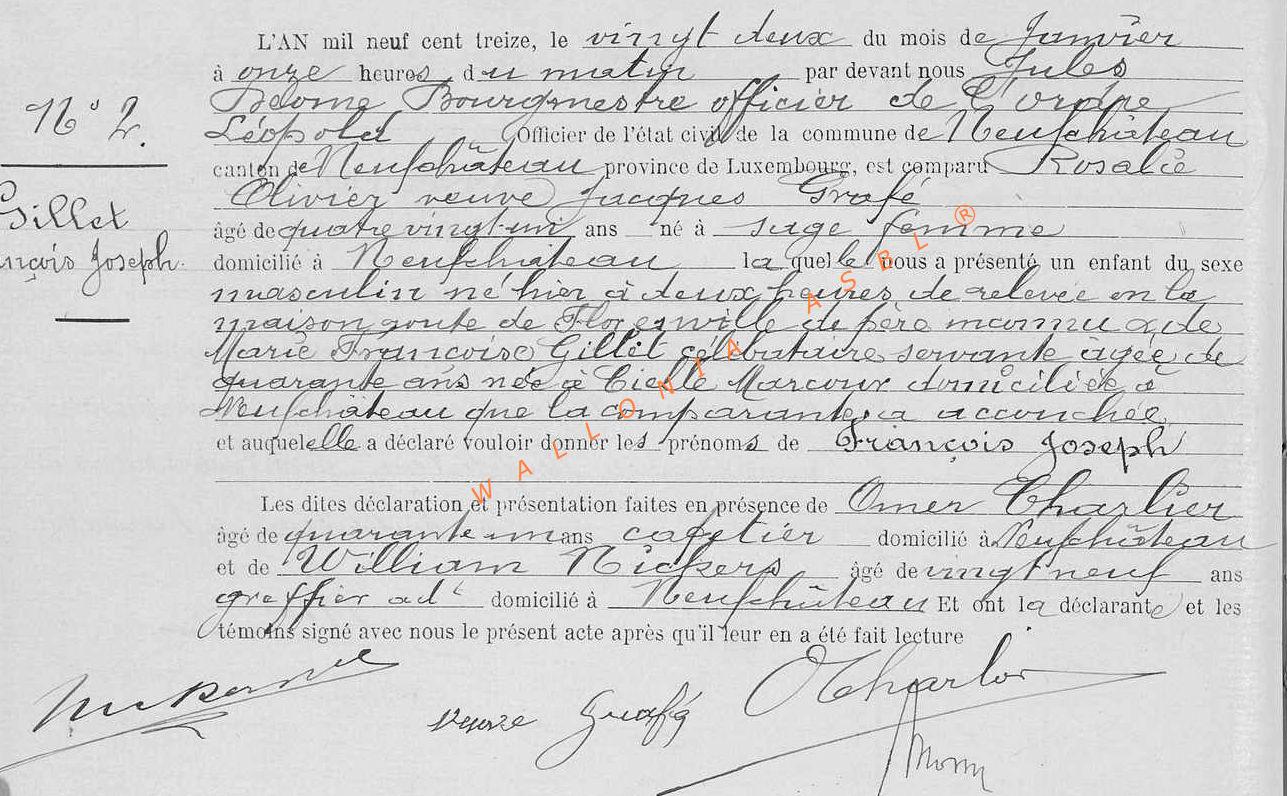 L'AN mil neuf cent treize, le vingt deux du mois de Janvier
à onze heures du matin par devant nous Jules
Bourgmestre officier de l'ordre
Léopold Officier de l'état civil de la commune de Neufchâteau
canton de Neufchâteau province de Luxembourg, est comparu Rosalie
Olivier veuve Jacques Grafé
âgé de quatre vingt-un ans né à sage femme
domicilié à Neufchâteau laquelle nous a présenté un enfant du sexe
masculin né hier à deux heures de relevée en la
maison route de Florenville de père inconnu & de
Marie Françoise Gillet célibataire servante âgée de
quarante ans née à Cielle Marcour domiciliée à
Neufchâteau que la comparante a accouchée
et auquel elle a déclaré vouloir donner les prénoms de François Joseph
Les dites déclaration et présentation faites en présence de Omer Charlier
âgé de quarante un ans cafetier domicilié à Neufchâteau
et de William Nickers âgé de vingt neuf ans
greffier adt domicilié à Neufchâteau Et ont la déclarante et les
témoins signé avec nous le présent acte après qu'il leur en a été fait lecture
N° 2.
Gillet
nçois Joseph
veuve Grafé
WALLONIA ASBL ®